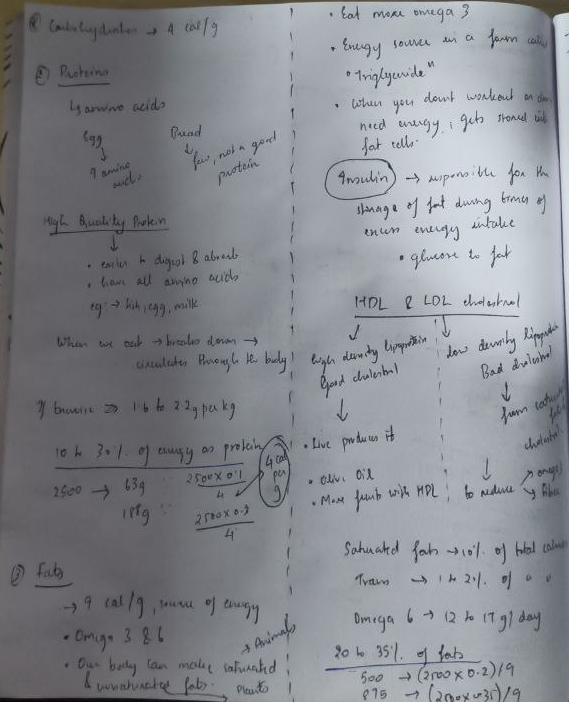 Carbohydrates → 4 cal/g
② Proteins
↳ amino acids
Egg
↓
9 amino
acids
Bread
↓
few, not a good
protein
High Quality Protein
↓
• easier to digest & absorb
• have all amino acids
eg: → fish, egg, milk
When we eat → breaks down →
circulates through the body
If exercise ⇒ 1.6 to 2.2g per kg
10 to 30% of energy as protein
2500 → 63g
188g
2500 x 0.1 / 4
2500 x 0.3 / 4
4 cal
per
g
③ Fats
→ 9 cal/g, source of energy
• Omega 3 & 6
→ Animals
• Our body can make saturated
& unsaturated fats.
→ Plants
• Eat more omega 3
• Energy source in a form called
"Triglyceride"
• When you dont workout or dont
need energy, gets stored into
fat cells.
Insulin → responsible for the
storage of fat during times of
excess energy intake
• glucose to fat
HDL & LDL cholestrol
high density lipoprotein
Good cholestrol
↓
• Live produces it
• Olive Oil
• More fruits with HDL
low density lipoprotein
Bad cholestrol
↓
from
cholestrol
↓
to reduce → omega
→ fiber
Saturated fats → 10% of total
Trans → 1 to 2% of " "
Omega 6 → 12 to 17 g/day
20 to 35% of fats
500 → (2500 x 0.2)/9
875 → (2500 x 0.35)/9